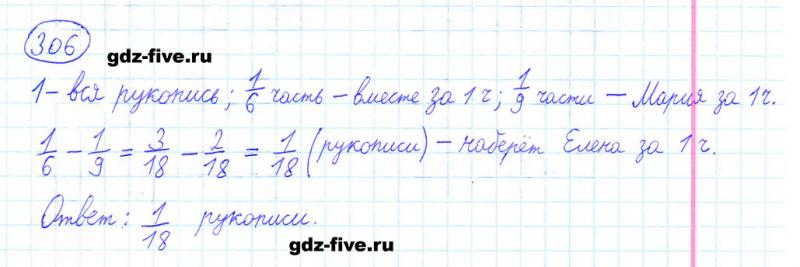 306
gdz-five.ru
1 – вся рукопись; 1/6 часть – вместе за 1 ч; 1/9 части – Мария за 1 ч.
1/6 – 1/9 = 3/18 – 2/18 = 1/18 (рукописи) – наберёт Елена за 1 ч.
Ответ: 1/18 рукописи.
gdz-five.ru